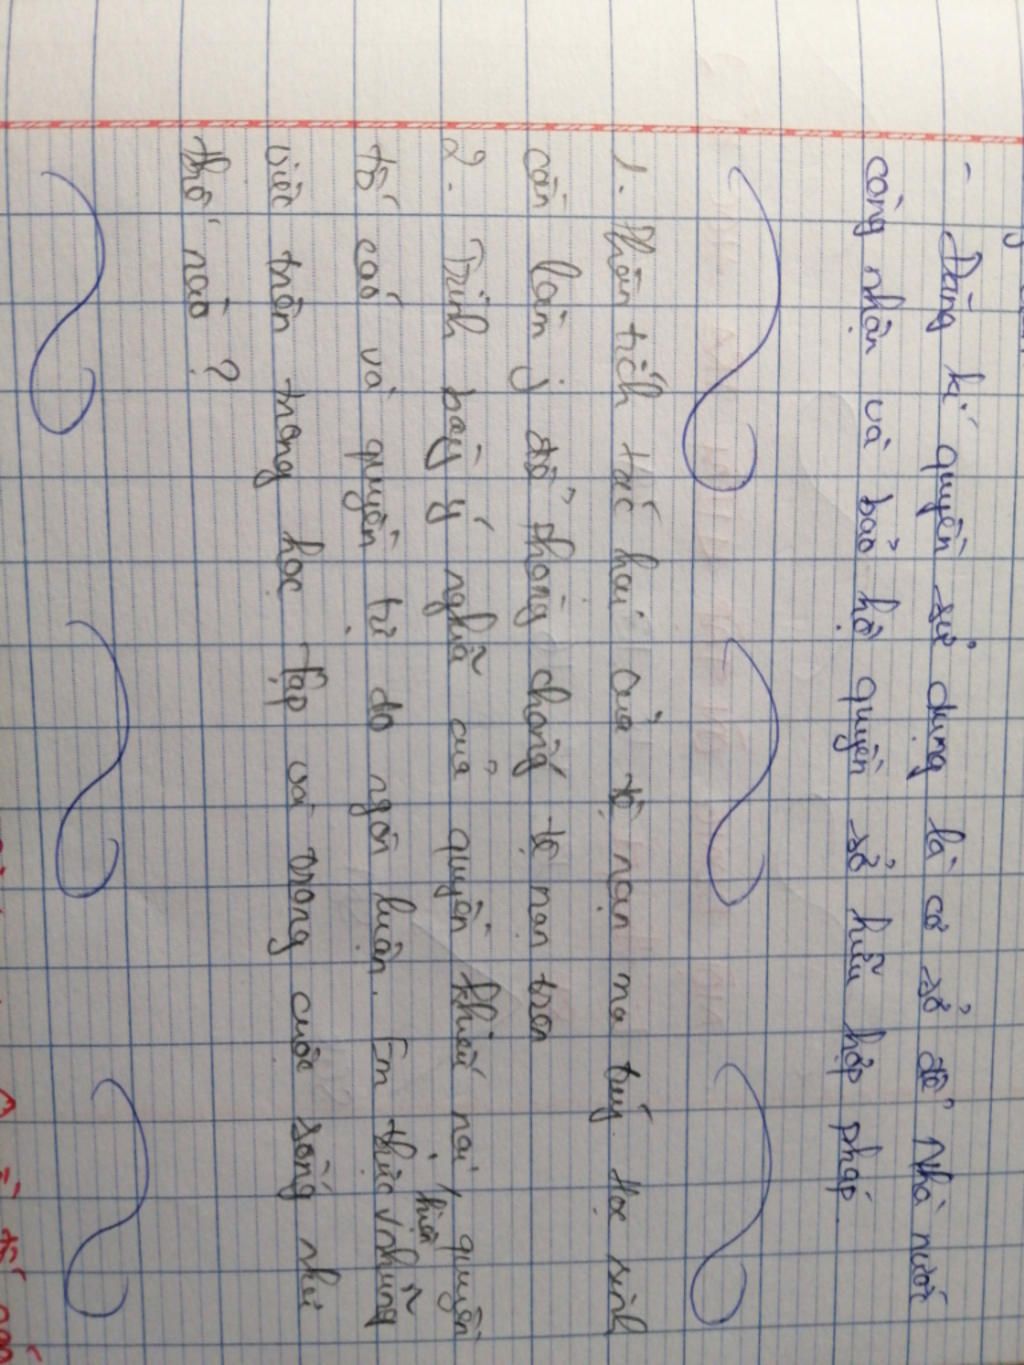 - Đăng kí quyền sử dụng là cơ sở để Nhà nước
công nhận và bảo hộ quyền sở hữu hợp pháp.
1. Phân tích tác hại của tệ nạn ma túy. Học sinh
cần làm j để phòng chống tệ nạn trên
2. Trình bày ý nghĩa của quyền khiếu nại, quyền
tố cáo và quyền tự do ngôn luận. Em thực hiện những
việc trên trong học tập và trong cuộc sống như
thế nào ?